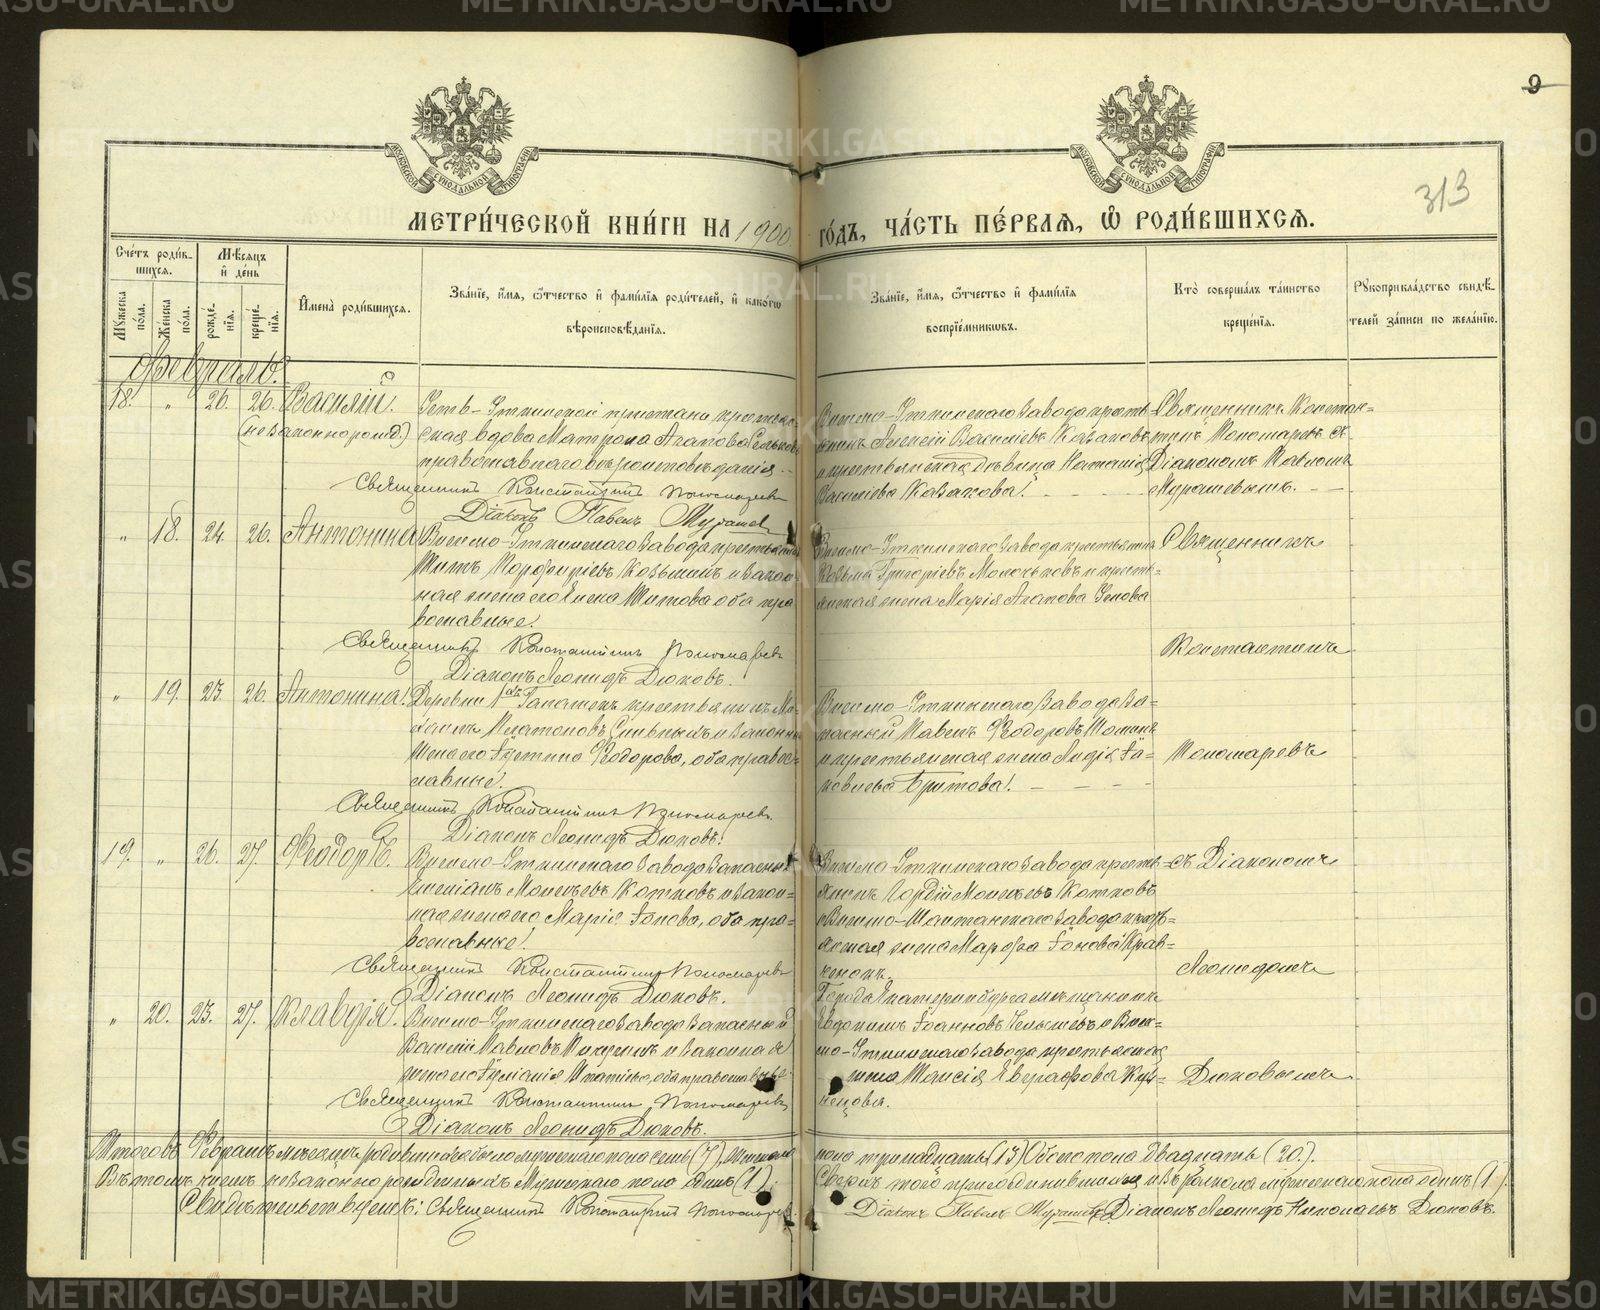 METRIKI.GASO-URAL.RU
9
313
МОСКОВСКОЙ СѴНОДАЛЬНОЙ ТИПОГРАФІИ
МОСКОВСКОЙ СѴНОДАЛЬНОЙ ТИПОГРАФІИ
МЕТРИ́ЧЕСКОЙ КНИ́ГИ НА 1900 ГО́ДЪ, ЧА́СТЬ ПЕ́РВАѦ, Ѡ РОДИ́ВШИХСѦ.
Сче́тъ роди́в-
шихся.
Мѣ́сяцъ
и҆ де́нь
Мꙋ́жеска
по́ла.
Же́нска
по́ла.
рожде́-
нїѧ.
креще́-
нїѧ.
И҆мена̀ роди́вшихсѧ.
Зва́нїе, и҆́мѧ, ѻ҆́тчество и҆ фами́лїѧ роди́телей, и҆ како́гѡ
вѣроисповѣ́данїѧ.
Зва́нїе, и҆́мѧ, ѻ҆́тчество и҆ фами́лїѧ
воспрїе́мникѡвъ.
Кто̀ соверша́лъ та́инство
креще́нїѧ.
Рꙋкоприкла́дство свидѣ́-
телей за́писи по жела́нїю.
Февраль.
18. " 26. 26. Василій.
(незаконнорожд.)
Усть-Уткинской пристани крестьян-
ская вдова Матрона Агапова
православнаго вѣроисповѣданія
Священникъ Константинъ Пономаревъ
Діаконъ Павелъ Мурашев
Висимо-Уткинскаго Завода кресть-
янинъ Алексій Васильевъ Казаковъ
и крестьянская дѣвица Наталія
Васильева Казакова.
Священникъ Констан-
тинъ Пономаревъ съ
Діакономъ Павломъ
Мурашевымъ.
" 18. 24. 26. Антонина
Висимо-Уткинскаго Завода крестьянинъ
Титъ Порфирьевъ Козьминъ и закон-
ная жена его Елена Титова оба пра-
вославные.
Священникъ Константинъ Пономаревъ
Діаконъ Леонидъ Дюковъ.
Висимо-Уткинскаго Завода крестьянинъ
Козьма Григорьевъ Молочковъ и кресть-
янская жена Марія Агапова
Священникъ
Константинъ
" 19. 23. 26. Антонина.
Деревни Галашекъ крестьянинъ
Платоновъ и законная
жена его Устина Ѳеодорова, оба право-
славные.
Священникъ Константинъ Пономаревъ
Діаконъ Леонидъ Дюковъ.
Висимо-Уткинскаго Завода за-
пасный Павелъ Ѳеодоровъ
и крестьянская жена Лидія Іа-
ковлева Бритова.
Пономаревъ
19. " 26. 27. Ѳеодоръ.
Висимо-Уткинскаго Завода запасный
Моисѣевъ Котковъ и закон-
ная жена его Марія Іонова, оба пра-
вославные.
Священникъ Константинъ Пономаревъ
Діаконъ Леонидъ Дюковъ.
Висимо-Уткинскаго Завода кресть-
янинъ Гордій Моисѣевъ Котковъ
и Висимо-Шайтанскаго Завода кресть-
янская жена Марфа Іонова Крав-
ченокъ.
съ Діакономъ
Леонидомъ
" 20. 23. 27. Клавдія.
Висимо-Уткинскаго Завода запасный
Василій Павловъ Никулинъ и законная
жена его Іуліанія Игнатьева, оба православные.
Священникъ Константинъ Пономаревъ
Діаконъ Леонидъ Дюковъ.
Города Екатеринбурга мѣщанинъ
Евдокимъ Іоанновъ и Виси-
мо-Уткинскаго Завода крестьянская
жена Таисія Евграфова Куз-
нецова.
Дюковымъ
Итого въ Февралѣ мѣсяцѣ родившихся было мужескаго пола семь (7), женскаго
пола тринадцать (13) Обоего пола двадцать (20).
Въ томъ числѣ незаконнорожденныхъ мужескаго пола одинъ (1).
Сверхъ того присоединившихся изъ раскола мужескаго пола одинъ (1).
Свидѣтельствуемъ: Священникъ Константинъ Пономаревъ
Діаконъ Павелъ Мурашевъ Діаконъ Леонидъ Николаевъ Дюковъ.